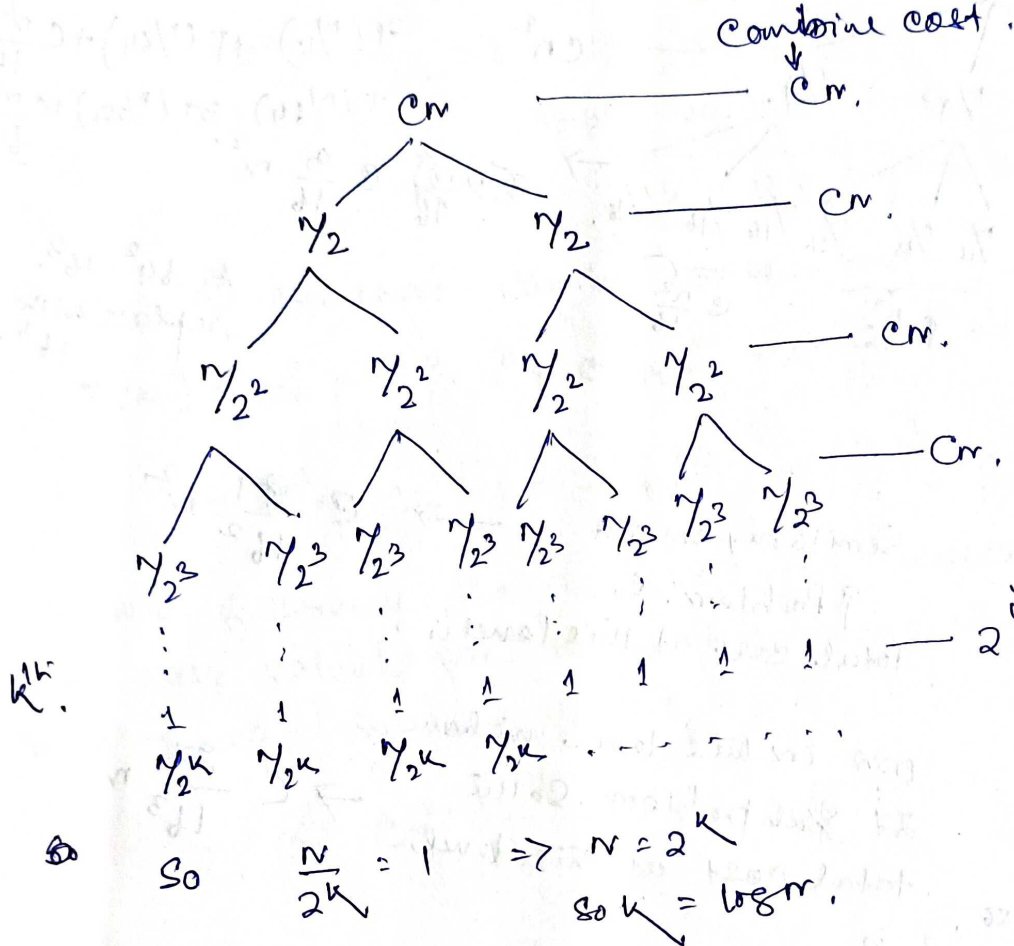 Combine cost.
Cn Cn.
n/2 n/2 Cn.
n/2² n/2² n/2² n/2² Cn.
Cn.
n/2³ n/2³ n/2³ n/2³ n/2³ n/2³ n/2³ n/2³
kth. 1 1 1 1 1 1 1 1 2^i
n/2^k n/2^k n/2^k n/2^k
So n/2^k = 1 => n = 2^k
so k = logn.